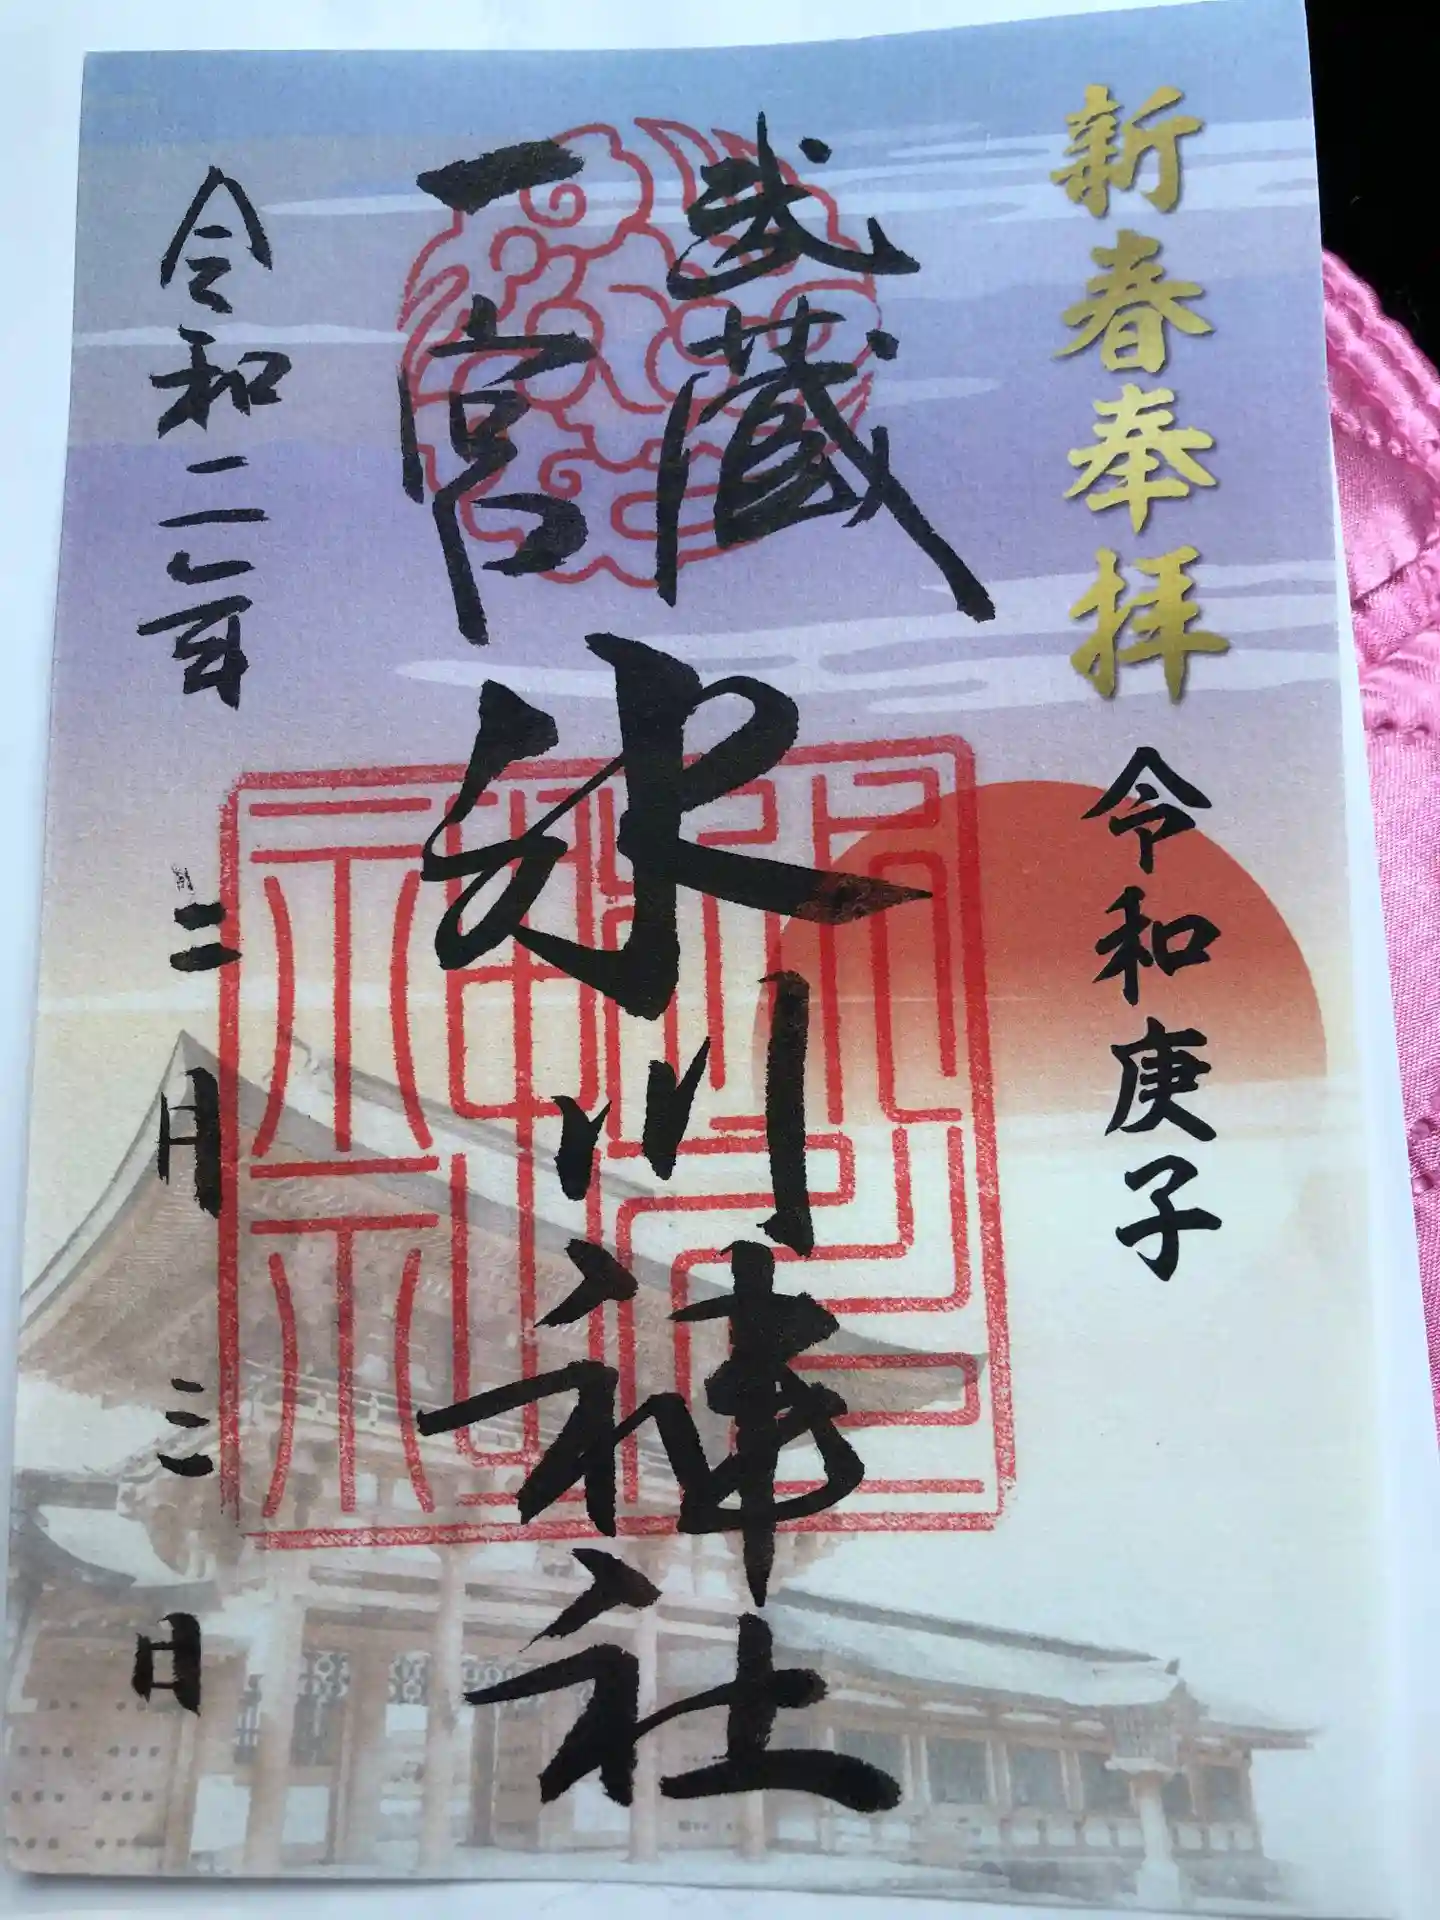 新春奉拝 令和庚子
武蔵
一宮
氷川神社
令和二年 二月 三日